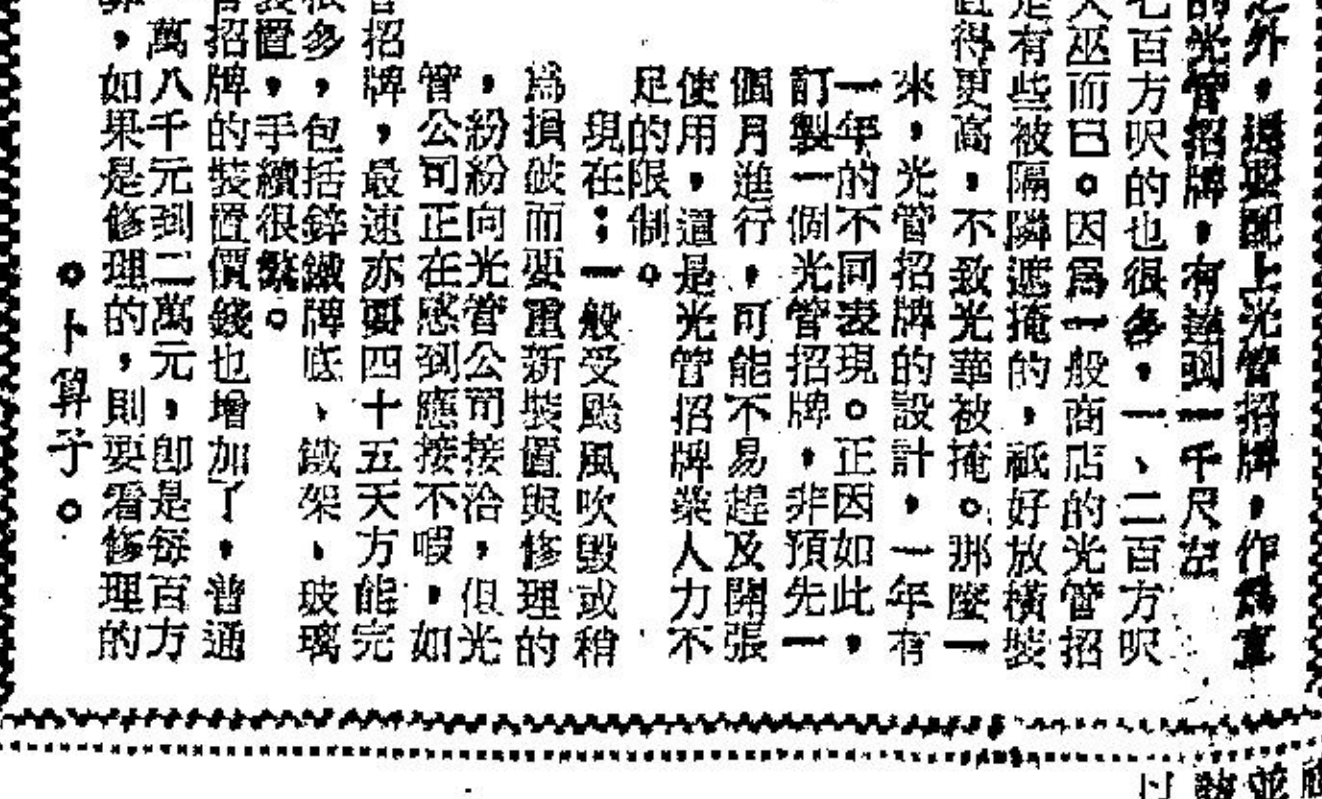 之外，還要配上光管招牌，作爲宣
的光管招牌，有達到一千尺左
七百方呎的也很多，一、二百方呎
大巫而已。因爲一般商店的光管招
是有些被隔隣遮掩的，祇好放橫裝
得更高，不致光華被掩。那麼一
來，光管招牌的設計，一年有
一年的不同表現。正因如此，
訂製一個光管招牌，非預先一
個月進行，可能不易趕及開張
使用，這是光管招牌業人力不
足的限制。
現在；一般受颱風吹毀或稍
爲損破而要重新裝置與修理的
，紛紛向光管公司接洽，但光
管公司正在感到應接不暇，如
招牌，最速亦要四十五天方能完
很多，包括鋅鐵牌底、鐵架、玻璃
裝置，手續很繁。
招牌的裝置價錢也增加了，普通
萬八千元到二萬元，卽是每百方
，如果是修理的，則要看修理的
。卜算子。